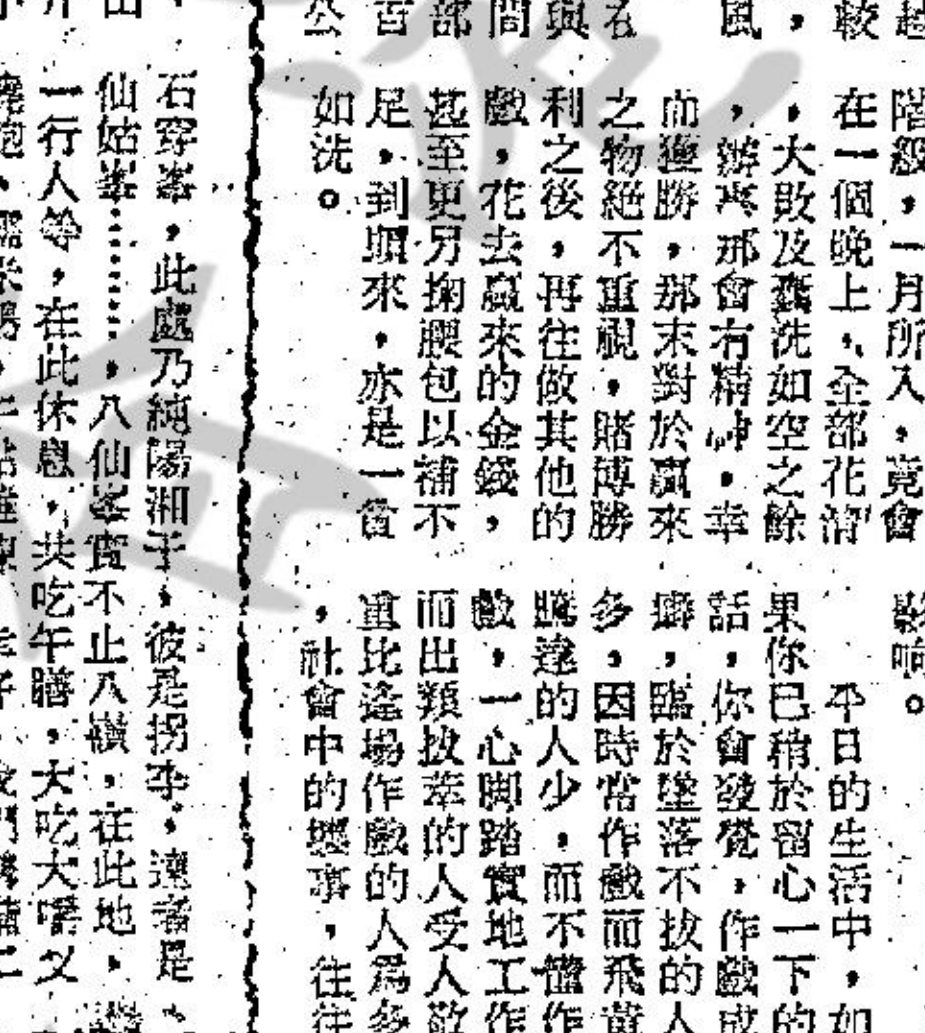 較，風
名
與
間
部
百
公
階級，一月所入，竟會
在一個晚上，全部花清
，大敗及囊洗如空之餘
，辦事那會有精神。幸
而獲勝，那末對於贏來
之物絕不重視，賭博勝
利之後，再往做其他的
戲，花去贏來的金錢，
甚至更另掏腰包以補不
足，到頭來，亦是一貧
如洗。
影响。
平日的生活中，如
果你已稍於留心一下的
話，你會發覺，作戲成
癖，臨於墜落不拔的人
多，因時常作戲而飛黃
騰達的人少，而不慣作
戲，一心脚踏實地工作
而出類拔萃的人受人敬
重比逢場作戲的人爲多
，社會中的壞事，往往
石穿峯，此處乃純陽湘子，彼是拐李，遠者是
仙姑峯………，八仙峯實不止八，在此地，
一行人等，在此休息，共吃午膳，大吃大嚼又